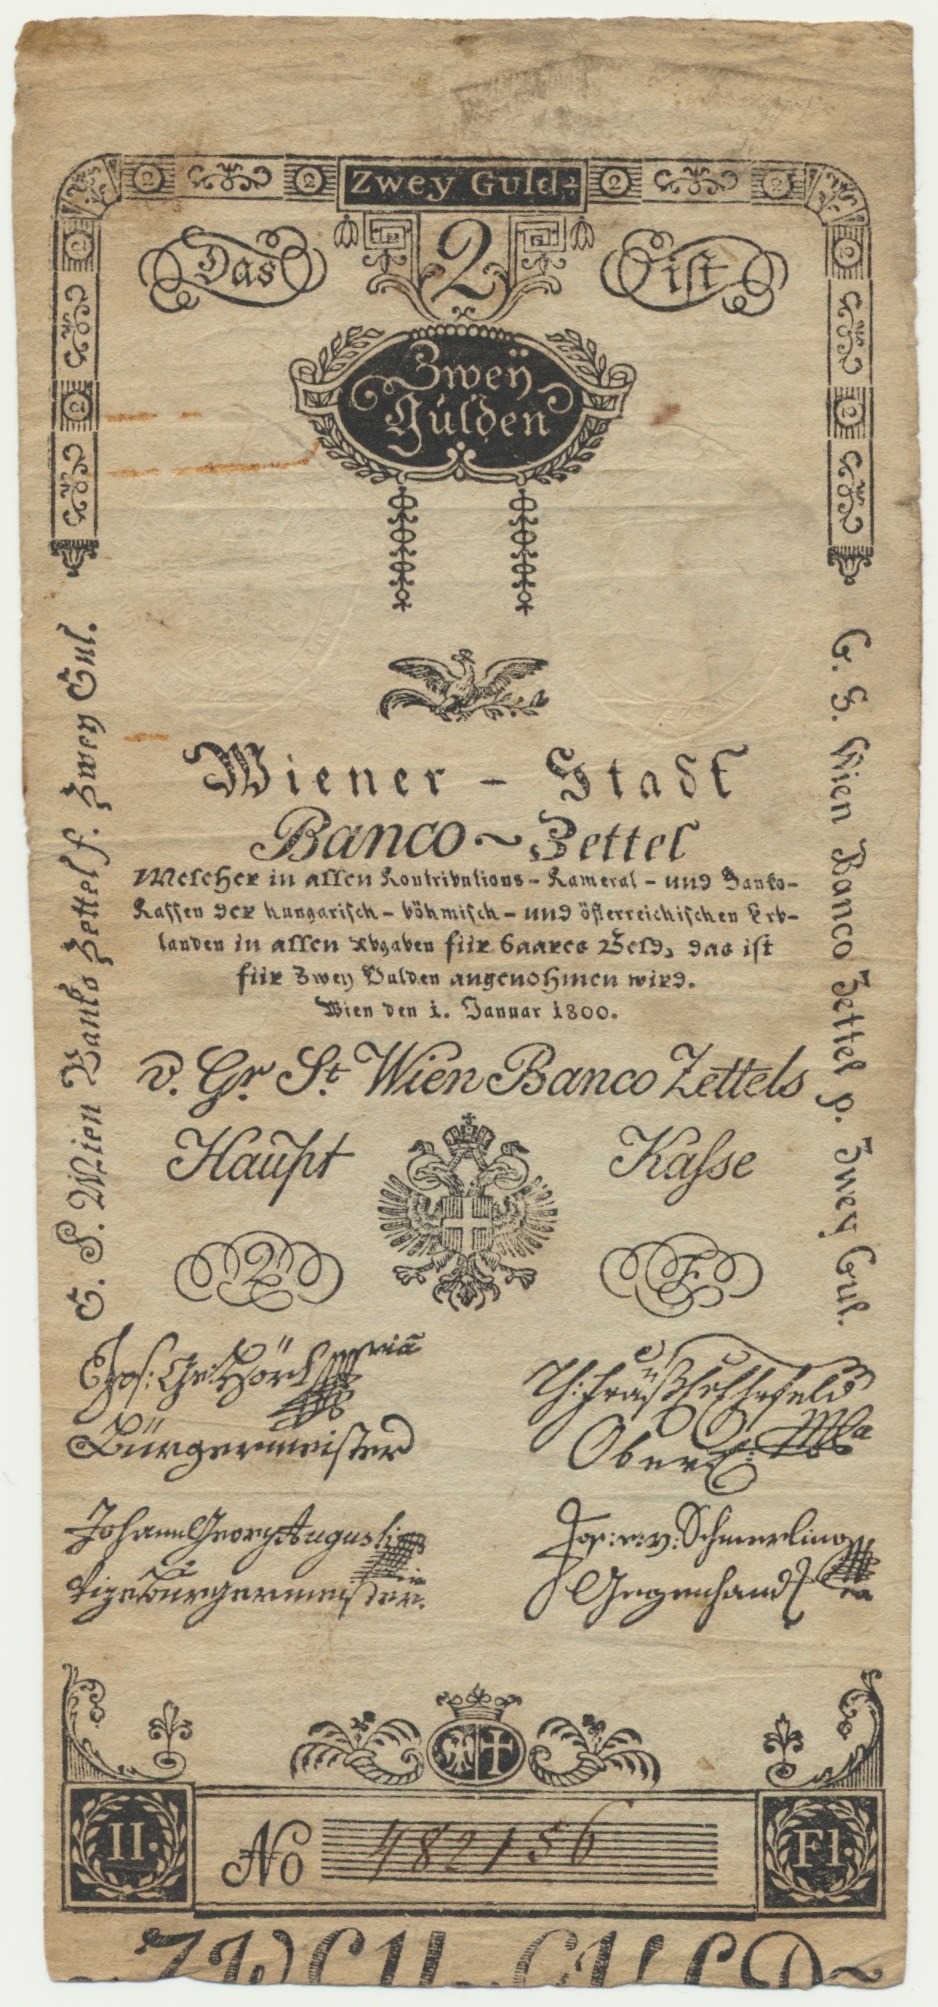 Zwey Guld:
2 2 2 2
Das 2 ist
Zweÿ
Gulden
Wiener - Stadt
Banco ~ Zettel
Welcher in allen Kontributions - Kameral - und Banko-
Kassen der hungarisch - böhmisch - und österreichischen Erb-
landen in allen Abgaben für baares Geld, das ist
für Zwey Gulden angenohmen wird.
Wien den 1. Januar 1800.
v. Gr. St. Wien Banco Zettels
Haupt Kasse
2 F
Bürgermeister
Johann Georg Augusti
Vizebürgermeister.
Jos: e: v: Schmerling
Gegenhand
G. S. Wien Banko Zettel f. Zwey Gul.
G. S. Wien Banco Zettel p. Zwey Gul.
II. No 482156 Fl.
ZWEY GULD